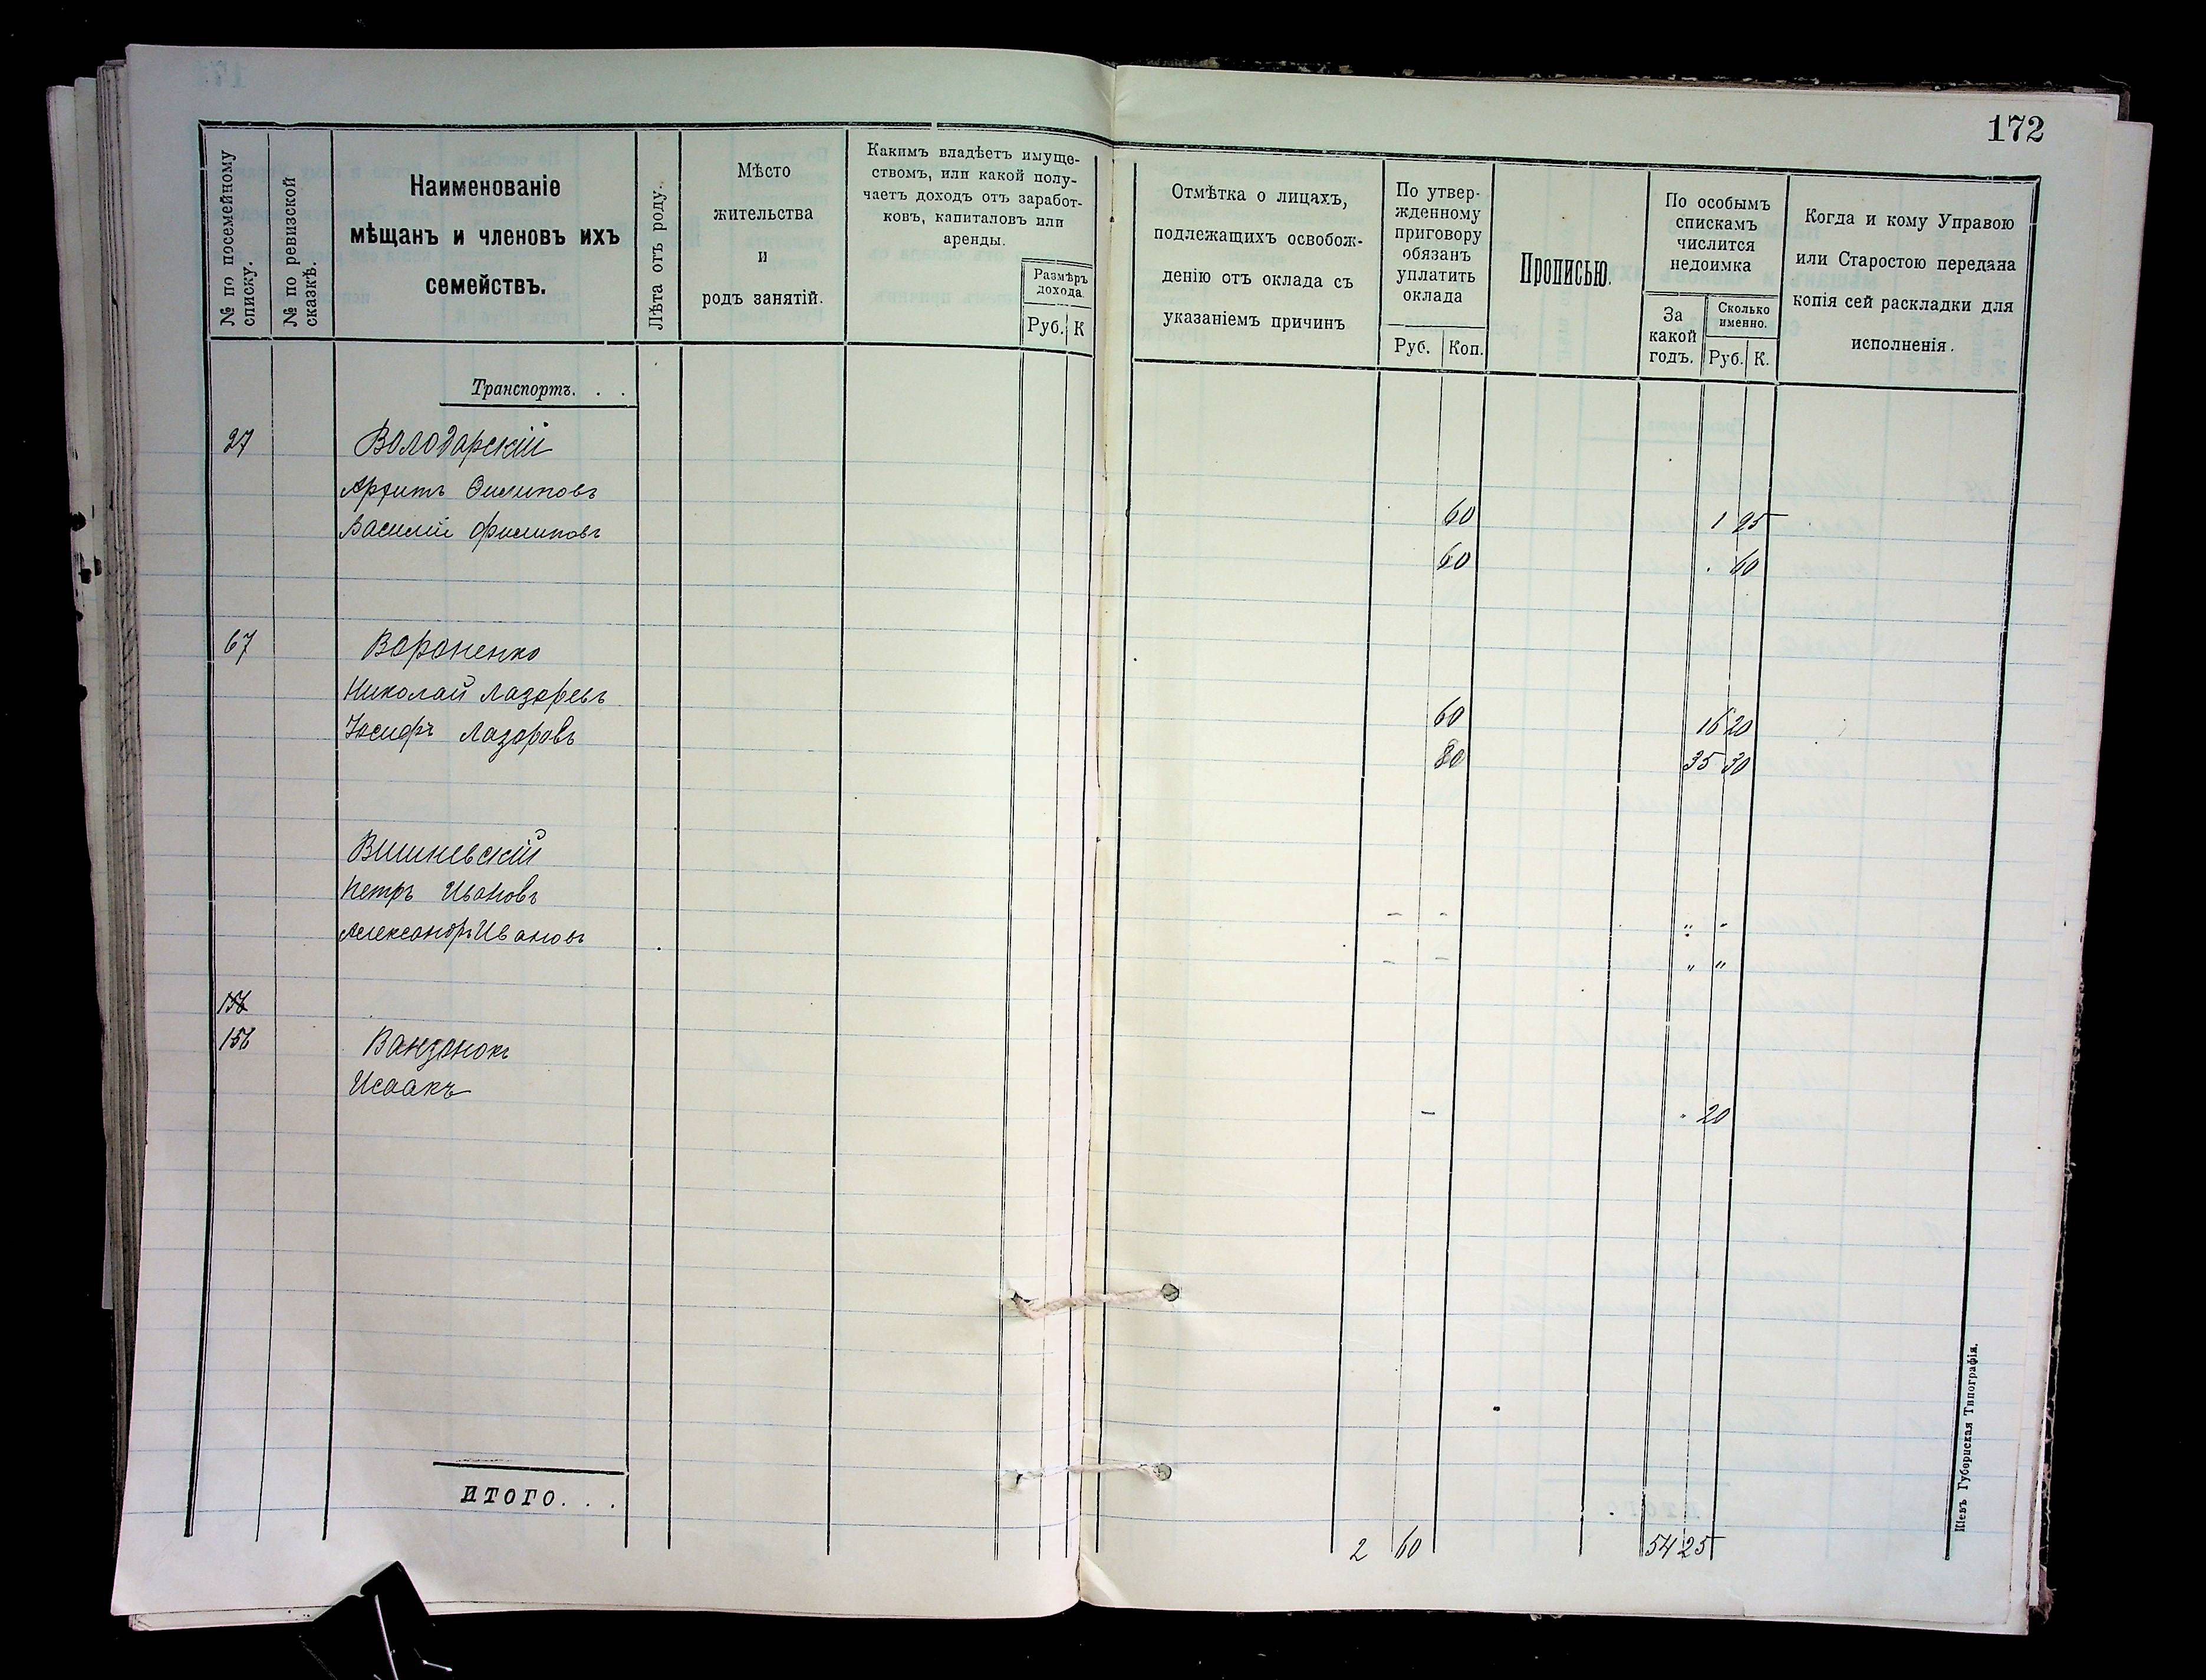 172
№ по посемейному списку.
№ по ревизской сказкѣ.
Наименованіе
мѣщанъ и членовъ ихъ
семействъ.
Лѣта отъ роду.
Мѣсто
жительства
и
родъ занятій.
Какимъ владѣетъ имуще-
ствомъ, или какой полу-
чаетъ доходъ отъ заработ-
ковъ, капиталовъ или
аренды.
Размѣръ
дохода.
Руб. К
Отмѣтка о лицахъ,
подлежащихъ освобож-
денію отъ оклада съ
указаніемъ причинъ
По утвер-
жденному
приговору
обязанъ
уплатить
оклада
Руб. Коп.
Прописью.
По особымъ
спискамъ
числится
недоимка
За
какой
годъ.
Сколько
именно.
Руб. К.
Когда и кому Управою
или Старостою передана
копія сей раскладки для
исполненія.
Транспортъ. . .
27 Володарскій
Филиповъ 60 1 95
Василій Филиповъ 60 . 60
67 Вороненко
Николай Лазаревъ 60 16 20
Іосифъ Лазаровъ 80 35 30
Вишневскій
Петръ Ивановъ - - " "
Александръ Ивановъ - - " "
156
156 Ванзонокъ
Исаакъ - " 20
ИТОГО. . . 2 60 54 25
Кіевъ Губернская Типографія.